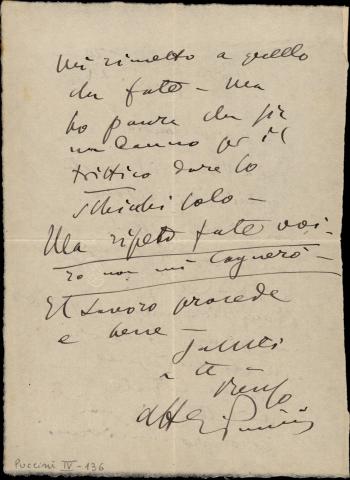 Mi rimetto a quello
che fate – Ma
ho paura che sia
un danno per il
trittico dare lo
Schicchi solo –
Ma ripeto fate voi –
io non mi lagnerò –
Il lavoro procede
e bene –
Saluti
a te
aff G Puccini
Puccini IV - 136